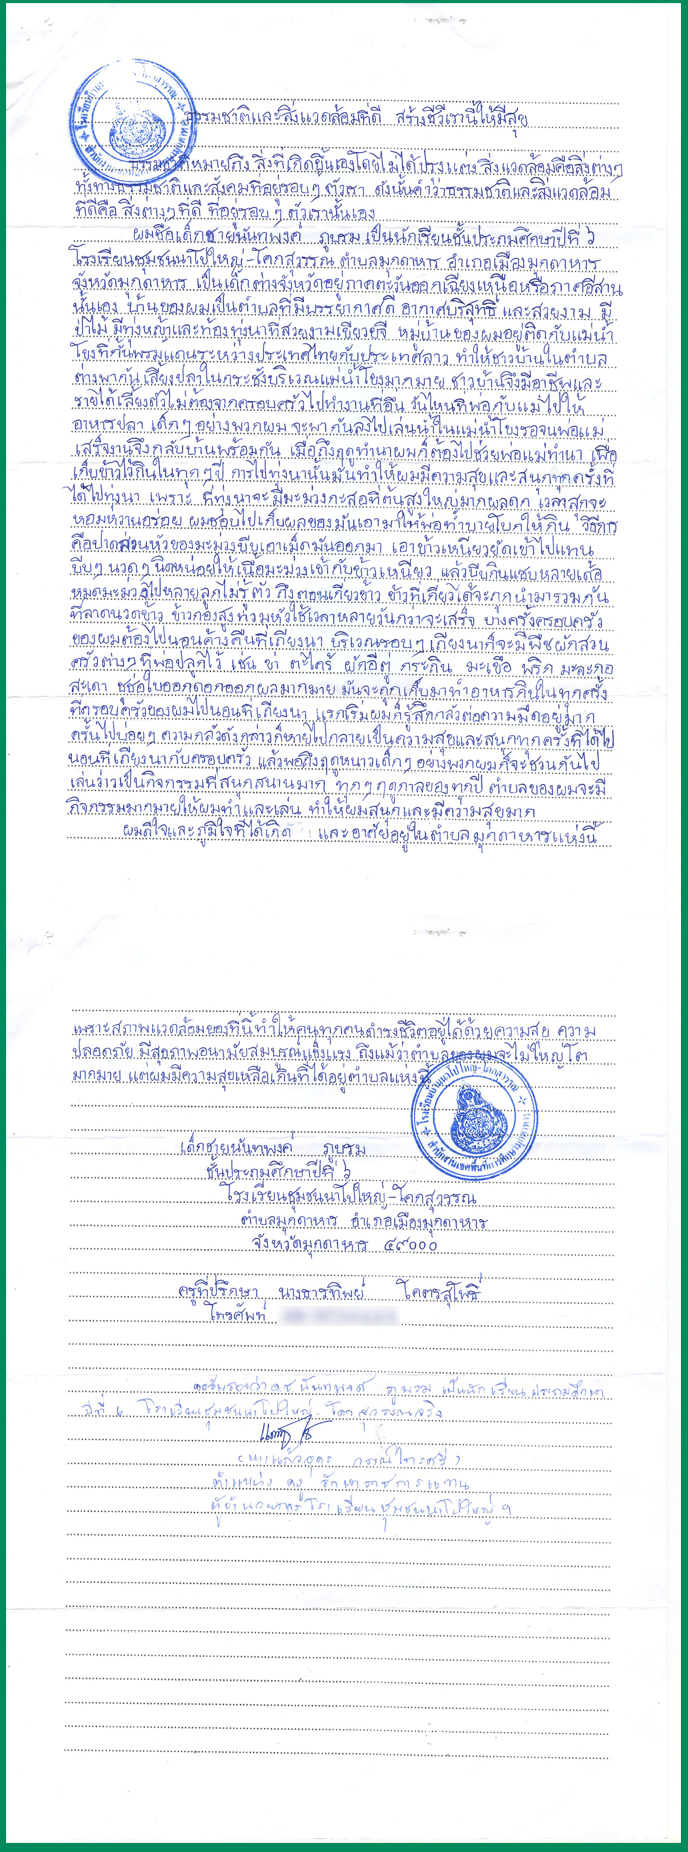 ธรรมชาติและสิ่งแวดล้อมที่ดี สร้างชีวีเรานี้ให้มีสุข
ธรรมชาติหมายถึง สิ่งที่เกิดขึ้นเองโดยไม่ได้ปรุงแต่ง สิ่งแวดล้อมคือสิ่งต่างๆ
ทั้งทางธรรมชาติและสังคมที่อยู่รอบๆ ตัวเรา ดังนั้นคำว่าธรรมชาติและสิ่งแวดล้อม
ที่ดีคือ สิ่งต่างๆ ที่ดี ที่อยู่รอบๆ ตัวเรานั้นเอง
ผมชื่อเด็กชายนันทพงค์ ภูบรม เป็นนักเรียนชั้นประถมศึกษาปีที่ ๖
โรงเรียนชุมชนนาโปใหญ่-โคกสุวรรณ ตำบลมุกดาหาร อำเภอเมืองมุกดาหาร
จังหวัดมุกดาหาร เป็นเด็กต่างจังหวัดอยู่ภาคตะวันออกเฉียงเหนือหรือภาคอีสาน
นั้นเอง บ้านของผมเป็นตำบลที่มีบรรยากาศดี อากาศบริสุทธิ์ และสวยงาม มี
ป่าไม้ มีทุ่งหญ้าและท้องทุ่งนาที่สวยงามเขียวขจี หมู่บ้านของผมอยู่ติดกับแม่น้ำ
โขงที่กั้นพรมแดนระหว่างประเทศไทยกับประเทศลาว ทำให้ชาวบ้านในตำบล
ต่างพากันเลี้ยงปลาในกระชังบริเวณแม่น้ำโขงมากมาย ชาวบ้านจึงมีอาชีพและ
รายได้เลี้ยงตัวไม่ต้องจากครอบครัวไปทำงานที่อื่น วันไหนที่พ่อกับแม่ไปให้
อาหารปลา เด็กๆ อย่างพวกผม จะพากันลงไปเล่นน้ำในแม่น้ำโขงรอจนพ่อแม่
เสร็จงานจึงกลับบ้านพร้อมกัน เมื่อถึงฤดูทำนาผมก็ต้องไปช่วยพ่อแม่ทำนา เพื่อ
เก็บข้าวไว้กินในทุกๆ ปี การไปทุ่งนานั้นมันทำให้ผมมีความสุขและสนุกทุกครั้งที่
ได้ไปทุ่งนา เพราะ ที่ทุ่งนาจะมีมะม่วงกะสอที่ต้นสูงใหญ่มากผลดก เวลาสุกจะ
หอมหวานอร่อย ผมชอบไปเก็บผลของมันเอามาให้พ่อทำบายโบกให้กิน วิธีการ
คือปาดส่วนหัวของมะม่วงบีบเอาเม็ดมันออกมา เอาข้าวเหนียวยัดเข้าไปแทน
บีบๆ นวดๆ นิดหน่อยให้เนื้อมะม่วงเข้ากับข้าวเหนียว แล้วบีบกินแซบหลายเด้อ
หมดมะม่วงไปหลายลูกไม่รู้ตัว ถึงตอนเกี่ยวข้าว ข้าวที่เกี่ยวได้จะถูกนำมารวมกัน
ที่ลาดนวดข้าว ข้าวกองสูงท่วมหัวใช้เวลาหลายวันกว่าจะเสร็จ บางครั้งครอบครัว
ของผมต้องไปนอนค้างคืนที่เถียงนา บริเวณรอบๆ เถียงนาก็จะมีพืชผักสวน
ครัวต่างๆ ที่พ่อปลูกไว้ เช่น ข่า ตะไคร้ ผักอีตู่ กระถิน มะเขือ พริก มะละกอ
สะเดา ชูช่อใบออกดอกออกผลมากมาย มันจะถูกเก็บมาทำอาหารกินในทุกครั้ง
ที่ครอบครัวของผมไปนอนที่เถียงนา แรกเริ่มผมก็รู้สึกกลัวต่อความมืดอยู่มาก
ครั้นไปบ่อยๆ ความกลัวดังกล่าวก็หายไปกลายเป็นความสุขและสนุกทุกครั้งที่ได้ไป
นอนที่เถียงนากับครอบครัว แล้วพอถึงฤดูหนาวเด็กๆ อย่างพวกผมก็จะชวนกันไป
เล่นว่าวเป็นกิจกรรมที่สนุกสนานมาก ทุกๆ ฤดูกาลของทุกปี ตำบลของผมจะมี
กิจกรรมมากมายให้ผมทำและเล่น ทำให้ผมสนุกและมีความสุขมาก
ผมดีใจและภูมิใจที่ได้เกิด และอาศัยอยู่ในตำบลมุกดาหารแห่งนี้
เพราะสภาพแวดล้อมของที่นี้ทำให้คนทุกคนดำรงชีวิตอยู่ได้ด้วยความสุข ความ
ปลอดภัย มีสุขภาพอนามัยสมบูรณ์แข็งแรง ถึงแม้ว่าตำบลของผมจะไม่ใหญ่โต
มากมาย แต่ผมมีความสุขเหลือเกินที่ได้อยู่ตำบลแห่งนี้
เด็กชายนันทพงค์ ภูบรม
ชั้นประถมศึกษาปีที่ ๖
โรงเรียนชุมชนนาโปใหญ่-โคกสุวรรณ
ตำบลมุกดาหาร อำเภอเมืองมุกดาหาร
จังหวัดมุกดาหาร ๔๙๐๐๐
ครูที่ปรึกษา นางธารทิพย์ โคตรสุโพธิ์
โทรศัพท์
ขอรับรองว่า ดช นันทพงศ์ ภูบรม เป็นนักเรียนประถมศึกษา
ปีที่ ๖ โรงเรียนชุมชนนาโปใหญ่-โคกสุวรรณจริง
ตำแหน่ง ครู รักษาราชการแทน
ผู้อำนวยการโรงเรียนชุมชนนาโปใหญ่ฯ